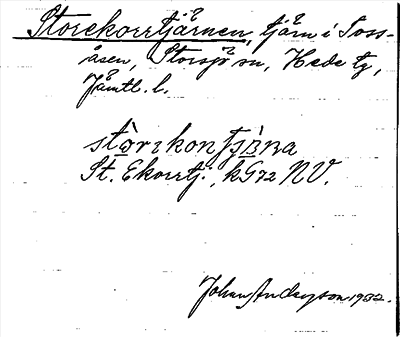 Storekorrtjärnen, tjärn i Toss-
åsen, Storsjö sn, Hede tg,
Jämtl. l.
St. Ekorrtj., kG72 NV.
Johan Anderson 1932.